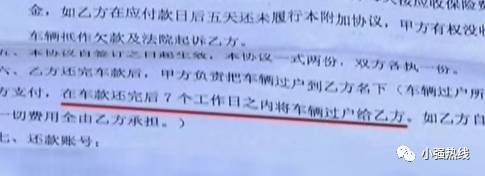 金，如乙方在应付款日后五天还未履行本附加协议，甲方有权没收
车辆抵作欠款及法院起诉乙方。
五、本协议自签订之日起生效，本协议一式两份，双方各执一份。
六、乙方还完车款后，甲方负责把车辆过户到乙方名下（车辆过户所
方支付，在车款还完后 7 个工作日之内将车辆过户给乙方。如乙方自
一切费用全由乙方承担。）
七、还款账号：
小强热线